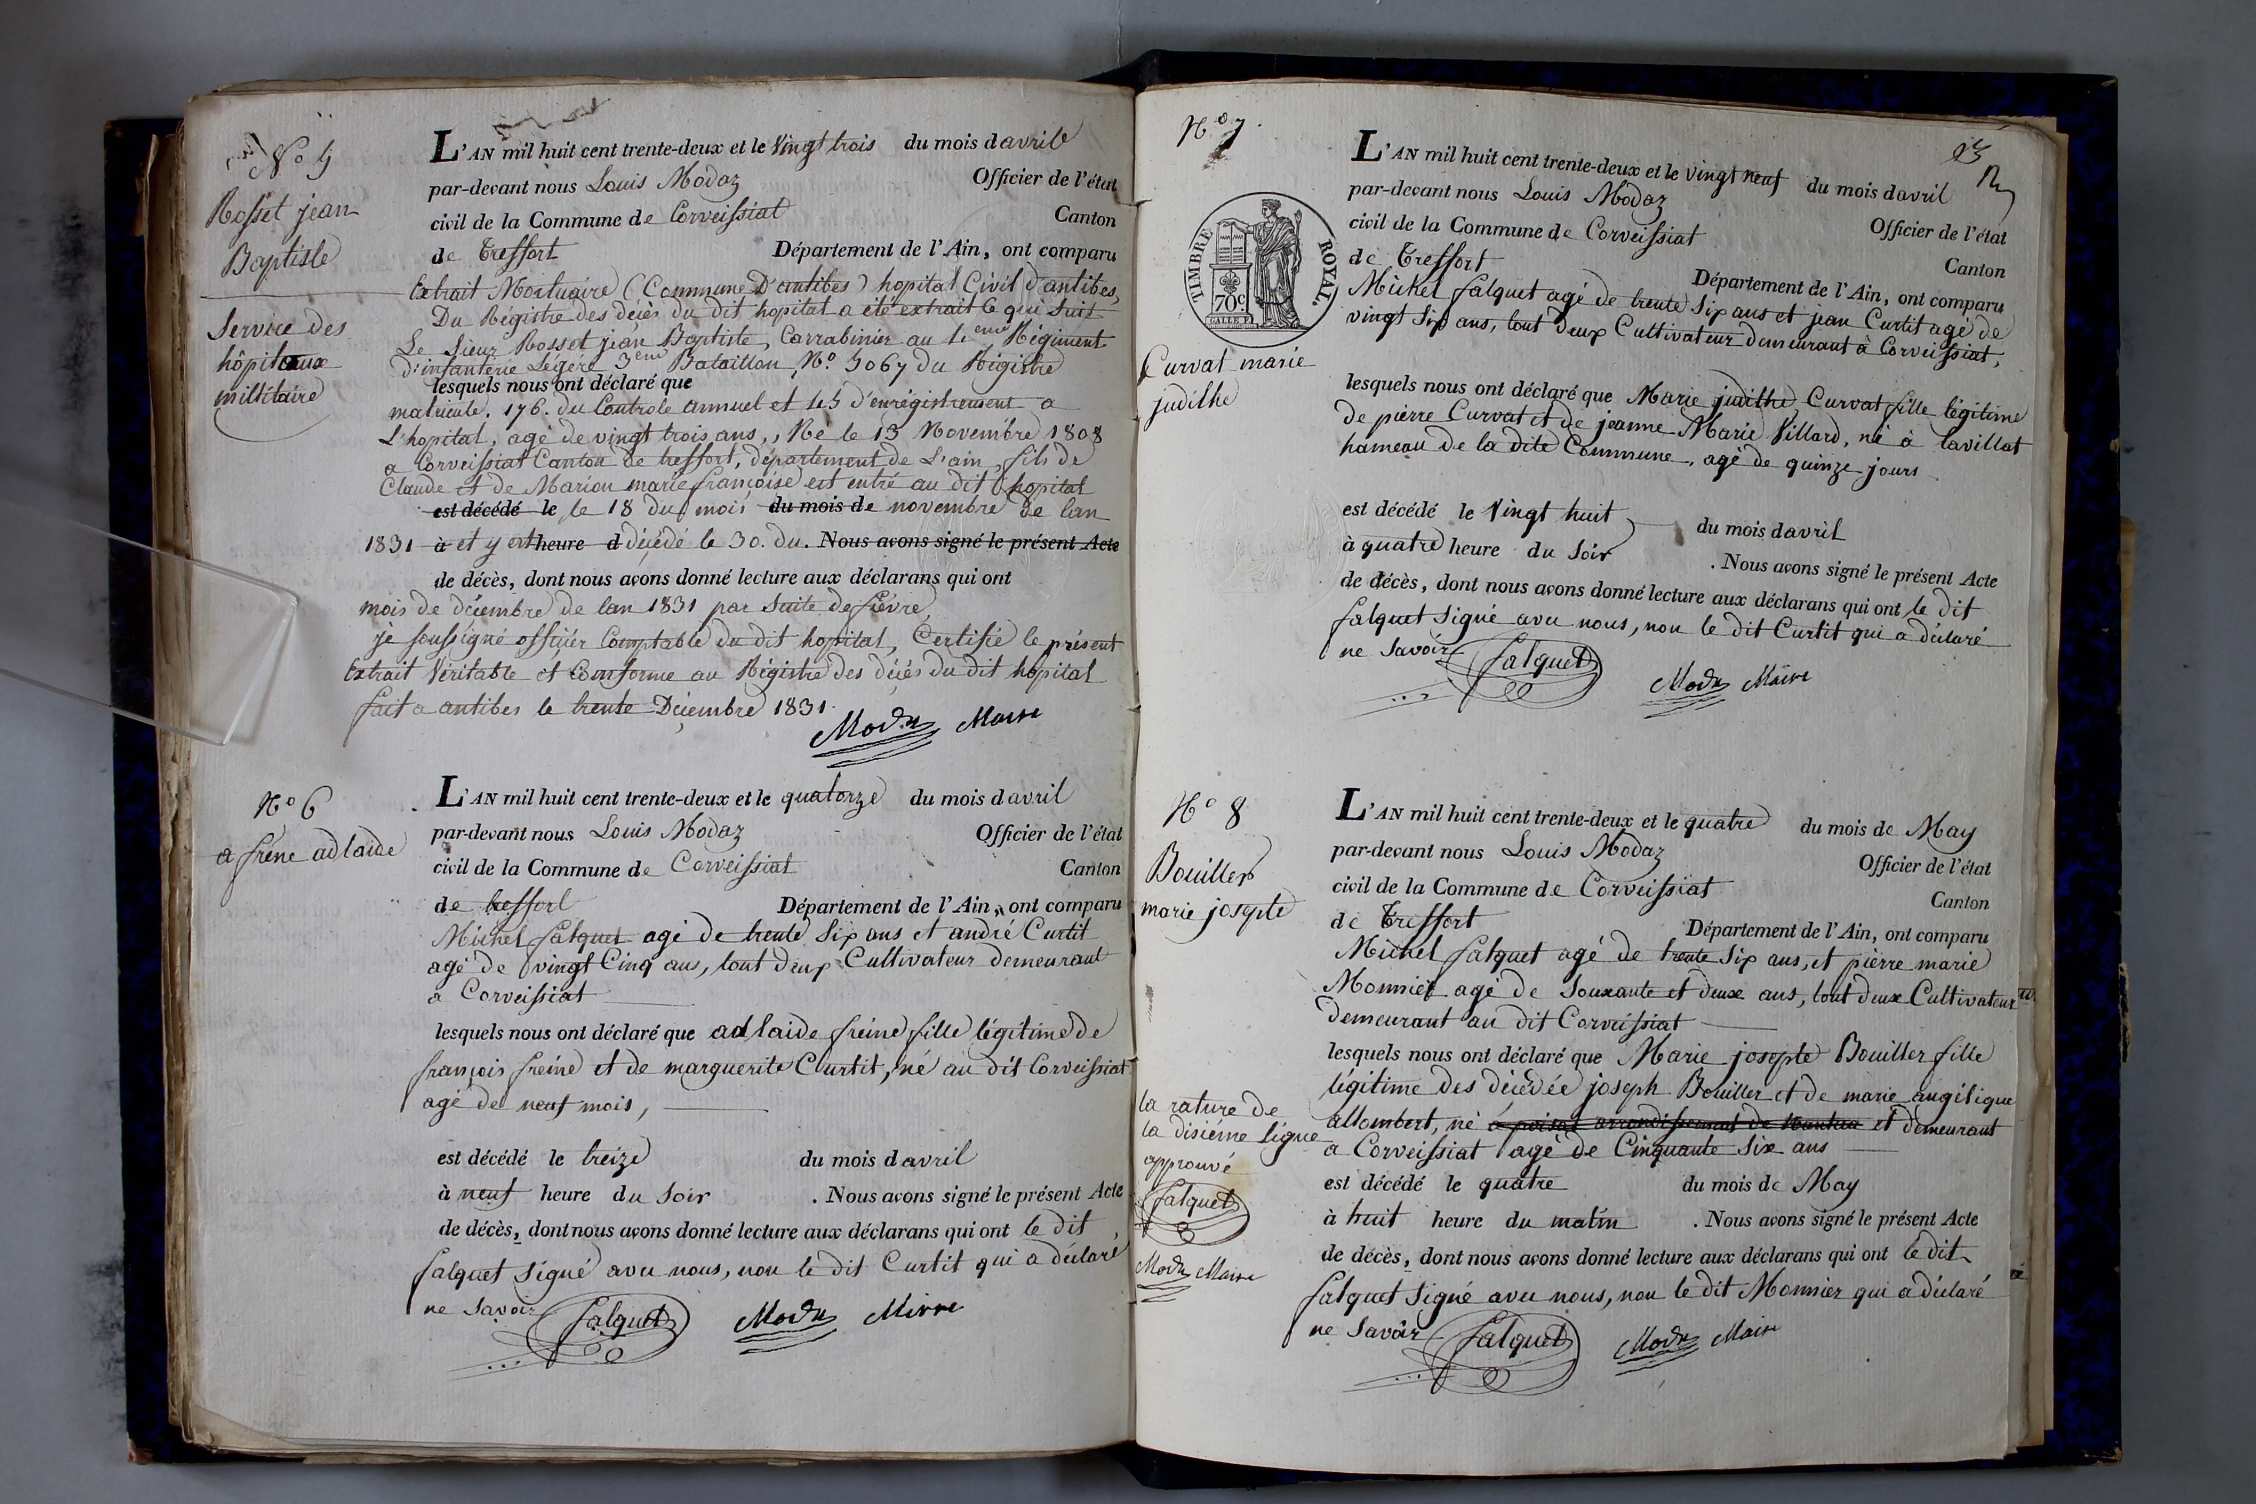 N.o 5
Rosset jean
Baptiste
Service des
hôpitaux
millitaire
L'AN mil huit cent trente-deux et le Vingt trois du mois d avril
par-devant nous Louis Modaz Officier de l'état
civil de la Commune de Corveissiat Canton
de Treffort Département de l'Ain, ont comparu
Extrait Mortuaire (Commune D'antibes) hopital Civil d'antibes,
Du Régistre des décés du dit hopital a été extrait Ce qui Suit
Le Sieur Rosset jean Baptiste, Carrabinier au 1.eme Régiment
d'infanterie Légére 3eme Bataillon, No. 5067 du Régistre
lesquels nous ont déclaré que
matricule. 176. du Controle annuel et 45 d'enrégistrement a
L'hopital, agé de vingt trois ans,, Né le 13 Novembre 1808
a Corveissiat Canton de treffort, département de L'ain, fils de
Claude et de Marion marie françoise est entré au dit hopital
est décédé le le 18 du mois du mois de novembre de lan
1831 à et y est heure d décédé le 30. du. Nous avons signé le présent Acte
de décès, dont nous avons donné lecture aux déclarans qui ont
mois de décembre de lan 1831 par Suite de fiévre
je soussigné officier Comptable du dit hopital, Certifie le présent
Extrait Véritable et Conforme au Régistre des décés du dit hopital
fait a antibes le trente Décembre 1831.
Modaz Maire
No 6
a frene adlaide
L'AN mil huit cent trente-deux et le quatorze du mois d avril
par-devant nous Louis Modaz Officier de l'état
civil de la Commune de Corveissiat Canton
de treffort Département de l'Ain, ont comparu
Michel falquet agé de trente Six ans et andré Curtit
agé de vingt Cinq ans, tout deux Cultivateur demeurant
a Corveissiat
lesquels nous ont déclaré que adlaide freine fille légitime de
françois freine et de marguerite Curtit, né au dit Corveissiat
agé de neuf mois,
est décédé le treize du mois d avril
à neuf heure du Soir . Nous avons signé le présent Acte
de décès, dont nous avons donné lecture aux déclarans qui ont le dit
falquet Signé avec nous, non le dit Curtit qui a déclaré
ne Savoir
falquet Modaz Maire
23
N.o 7
TIMBRE ROYAL.
70c.
Curvat marie
judithe
L'AN mil huit cent trente-deux et le vingt neuf du mois d avril
par-devant nous Louis Modaz Officier de l'état
civil de la Commune de Corveissiat Canton
de Treffort Département de l'Ain, ont comparu
Michel falquet agé de trente Six ans et jean Curtit agé de
vingt Six ans, tout deux Cultivateur demeurant à Corveissiat,
lesquels nous ont déclaré que Marie judithe Curvat fille légitime
de pierre Curvat et de jeanne Marie Villard, né à lavillat
hameau de la dite Commune, agé de quinze jours
est décédé le Vingt huit du mois d avril
à quatre heure du Soir . Nous avons signé le présent Acte
de décès, dont nous avons donné lecture aux déclarans qui ont le dit
falquet Signé avec nous, non le dit Curtit qui a déclaré
ne Savoir
falquet Modaz Maire
No 8
Bouiller
marie josepte
L'AN mil huit cent trente-deux et le quatre du mois de May
par-devant nous Louis Modaz Officier de l'état
civil de la Commune de Corveissiat Canton
de Treffort Département de l'Ain, ont comparu
Michel falquet agé de trente Six ans, et pierre marie
Monnier agé de Souxante et deux ans, tout deux Cultivateur
demeurant au dit Corveissiat
lesquels nous ont déclaré que Marie josepte Bouiller fille
légitime des décédée joseph Bouiller et de marie angélique
allombert, né a poisat arrondissement de Nantua et demeurant
a Corveissiat agé de Cinquante Six ans
est décédé le quatre du mois de May
à huit heure du matin . Nous avons signé le présent Acte
de décès, dont nous avons donné lecture aux déclarans qui ont le dit
falquet Signé avec nous, non le dit Monnier qui a déclaré
ne Savoir
falquet Modaz Maire
la rature de
la disiéme ligne
approuvé
falquet
Modaz Maire